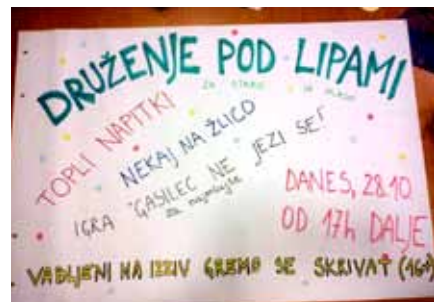 DRUŽENJE POD LIPAMI
ZA STARO IN MLADO
TOPLI NAPITKI
NEKAJ NA ŽLICO
IGRA "GASILEC NE JEZI SE!
za najmlajše
DANES, 28.10.
OD 17h DALJE
VABLJENI NA IZZIV GREMO SE SKRIVAT (16+)